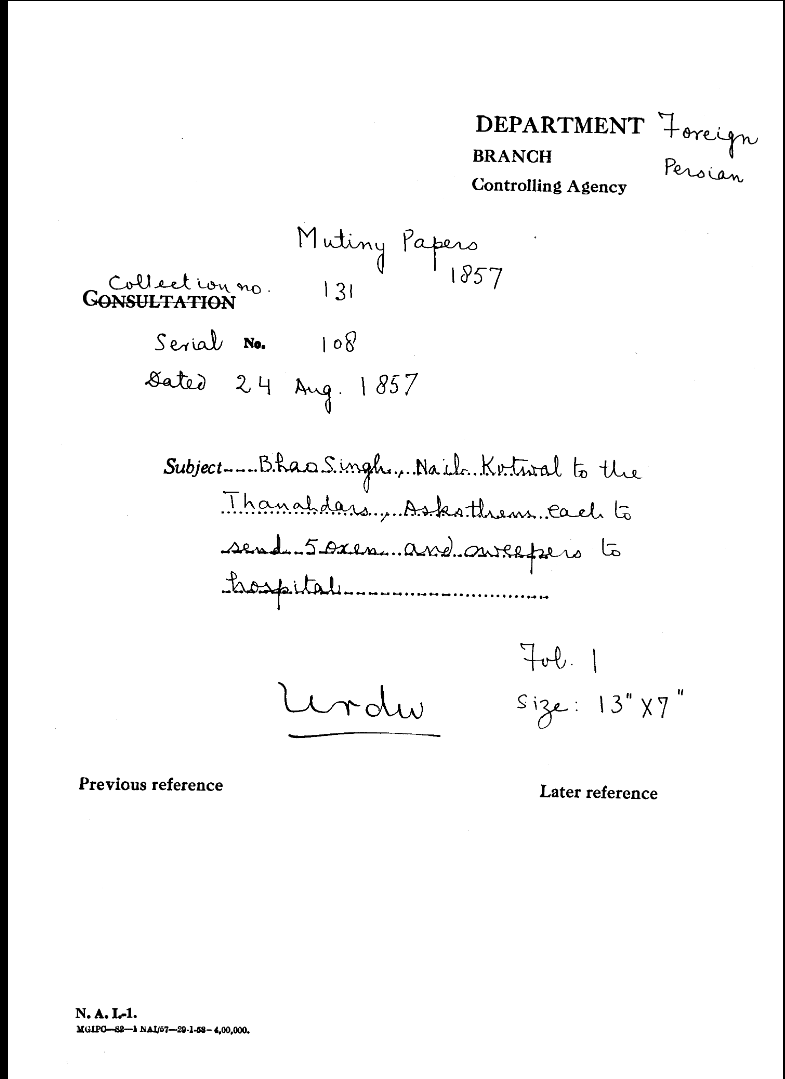 DEPARTMENT Foreign
BRANCH Persian
Controlling Agency
Mutiny Papers
1857
Collection no. 131
CONSULTATION
Serial No. 108
Dated 24 Aug. 1857
Subject Bhao Singh, Naib Kotwal to the
Thanahdars, Asks them each to
send 5 oxen and sweepers to
hospital
Fol. 1
Urdu
Size: 13" X 7"
Previous reference
Later reference
N. A. I.-1.
MGIPC—82—1 NAI/57—29-1-58—4,00,000.